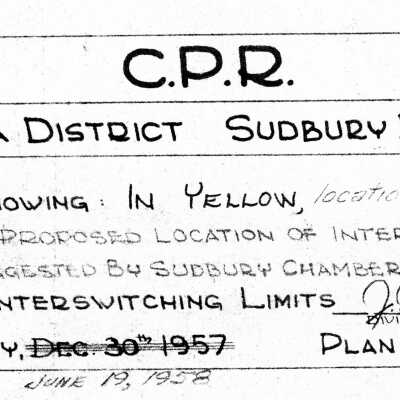 C.P.R.
A DISTRICT SUDBURY
HOWING: IN YELLOW, locatio
PROPOSED LOCATION OF INTER
GGESTED BY SUDBURY CHAMBER
NTERSWITCHING LIMITS
Y, DEC. 30th 1957 PLAN
JUNE 19, 1958